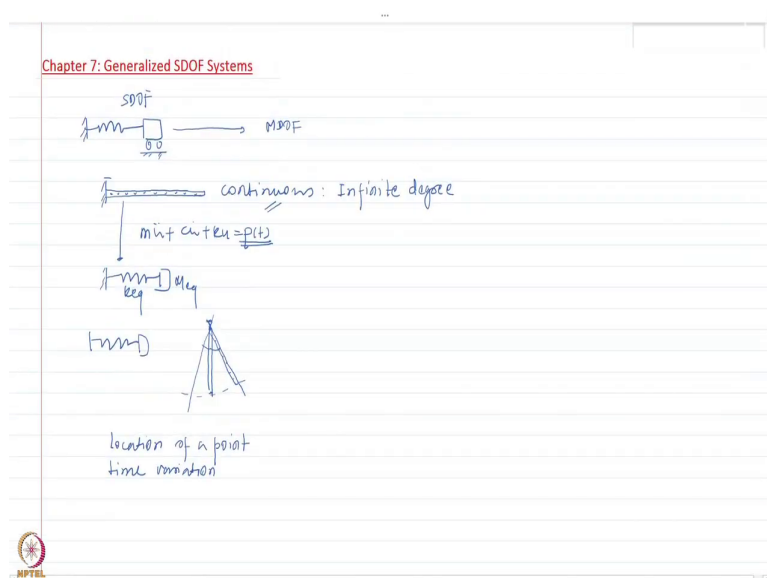 Chapter 7: Generalized SDOF Systems
SDOF
MDOF
continuous : Infinite degree
mü + cu̇ + ku = p(t)
keq Meq
location of a point
time variation
NPTEL